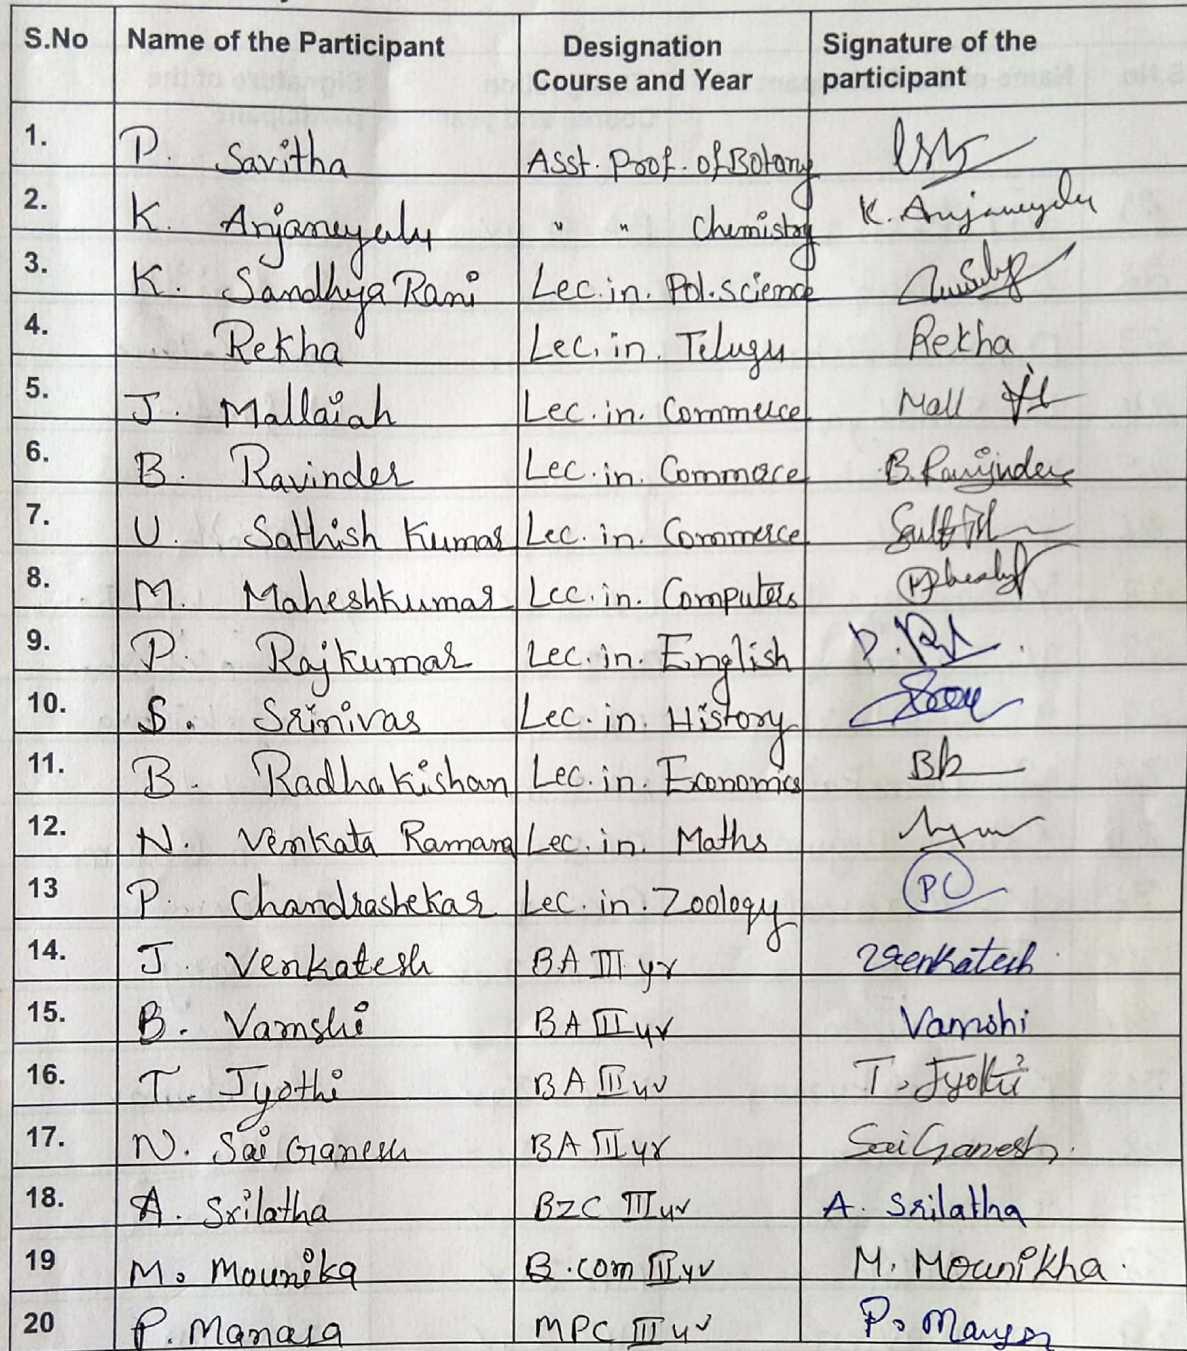 S.No Name of the Participant Designation Course and Year Signature of the participant
1. P. Savitha Asst. Prof. of Botany
2. K. Anjaneyulu " " Chemistry K. Anjaneyulu
3. K. Sandhya Rani Lec. in. Pol. science
4. Rekha Lec. in. Telugu Rekha
5. J. Mallaiah Lec. in. Commerce Mall
6. B. Ravinder Lec. in. Commerce B. Ravinder
7. U. Sathish Kumar Lec. in. Commerce
8. M. Maheshkumar Lec. in. Computers
9. P. Rajkumar Lec. in. English
10. S. Srinivas Lec. in. History
11. B. Radhakishan Lec. in. Economics
12. N. Venkata Ramana Lec. in. Maths
13 P. Chandrashekar Lec. in. Zoology PC
14. J. Venkatesh BA III yr Venkatesh
15. B. Vamshi BA III yr Vamshi
16. T. Jyothi BA III yr T. Jyothi
17. N. Sai Ganesh BA III yr Sai Ganesh.
18. A. Srilatha BZC III yr A. Srilatha
19 M. Mounika B.com III yr M. Mounikha.
20 P. Manasa MPC III yr